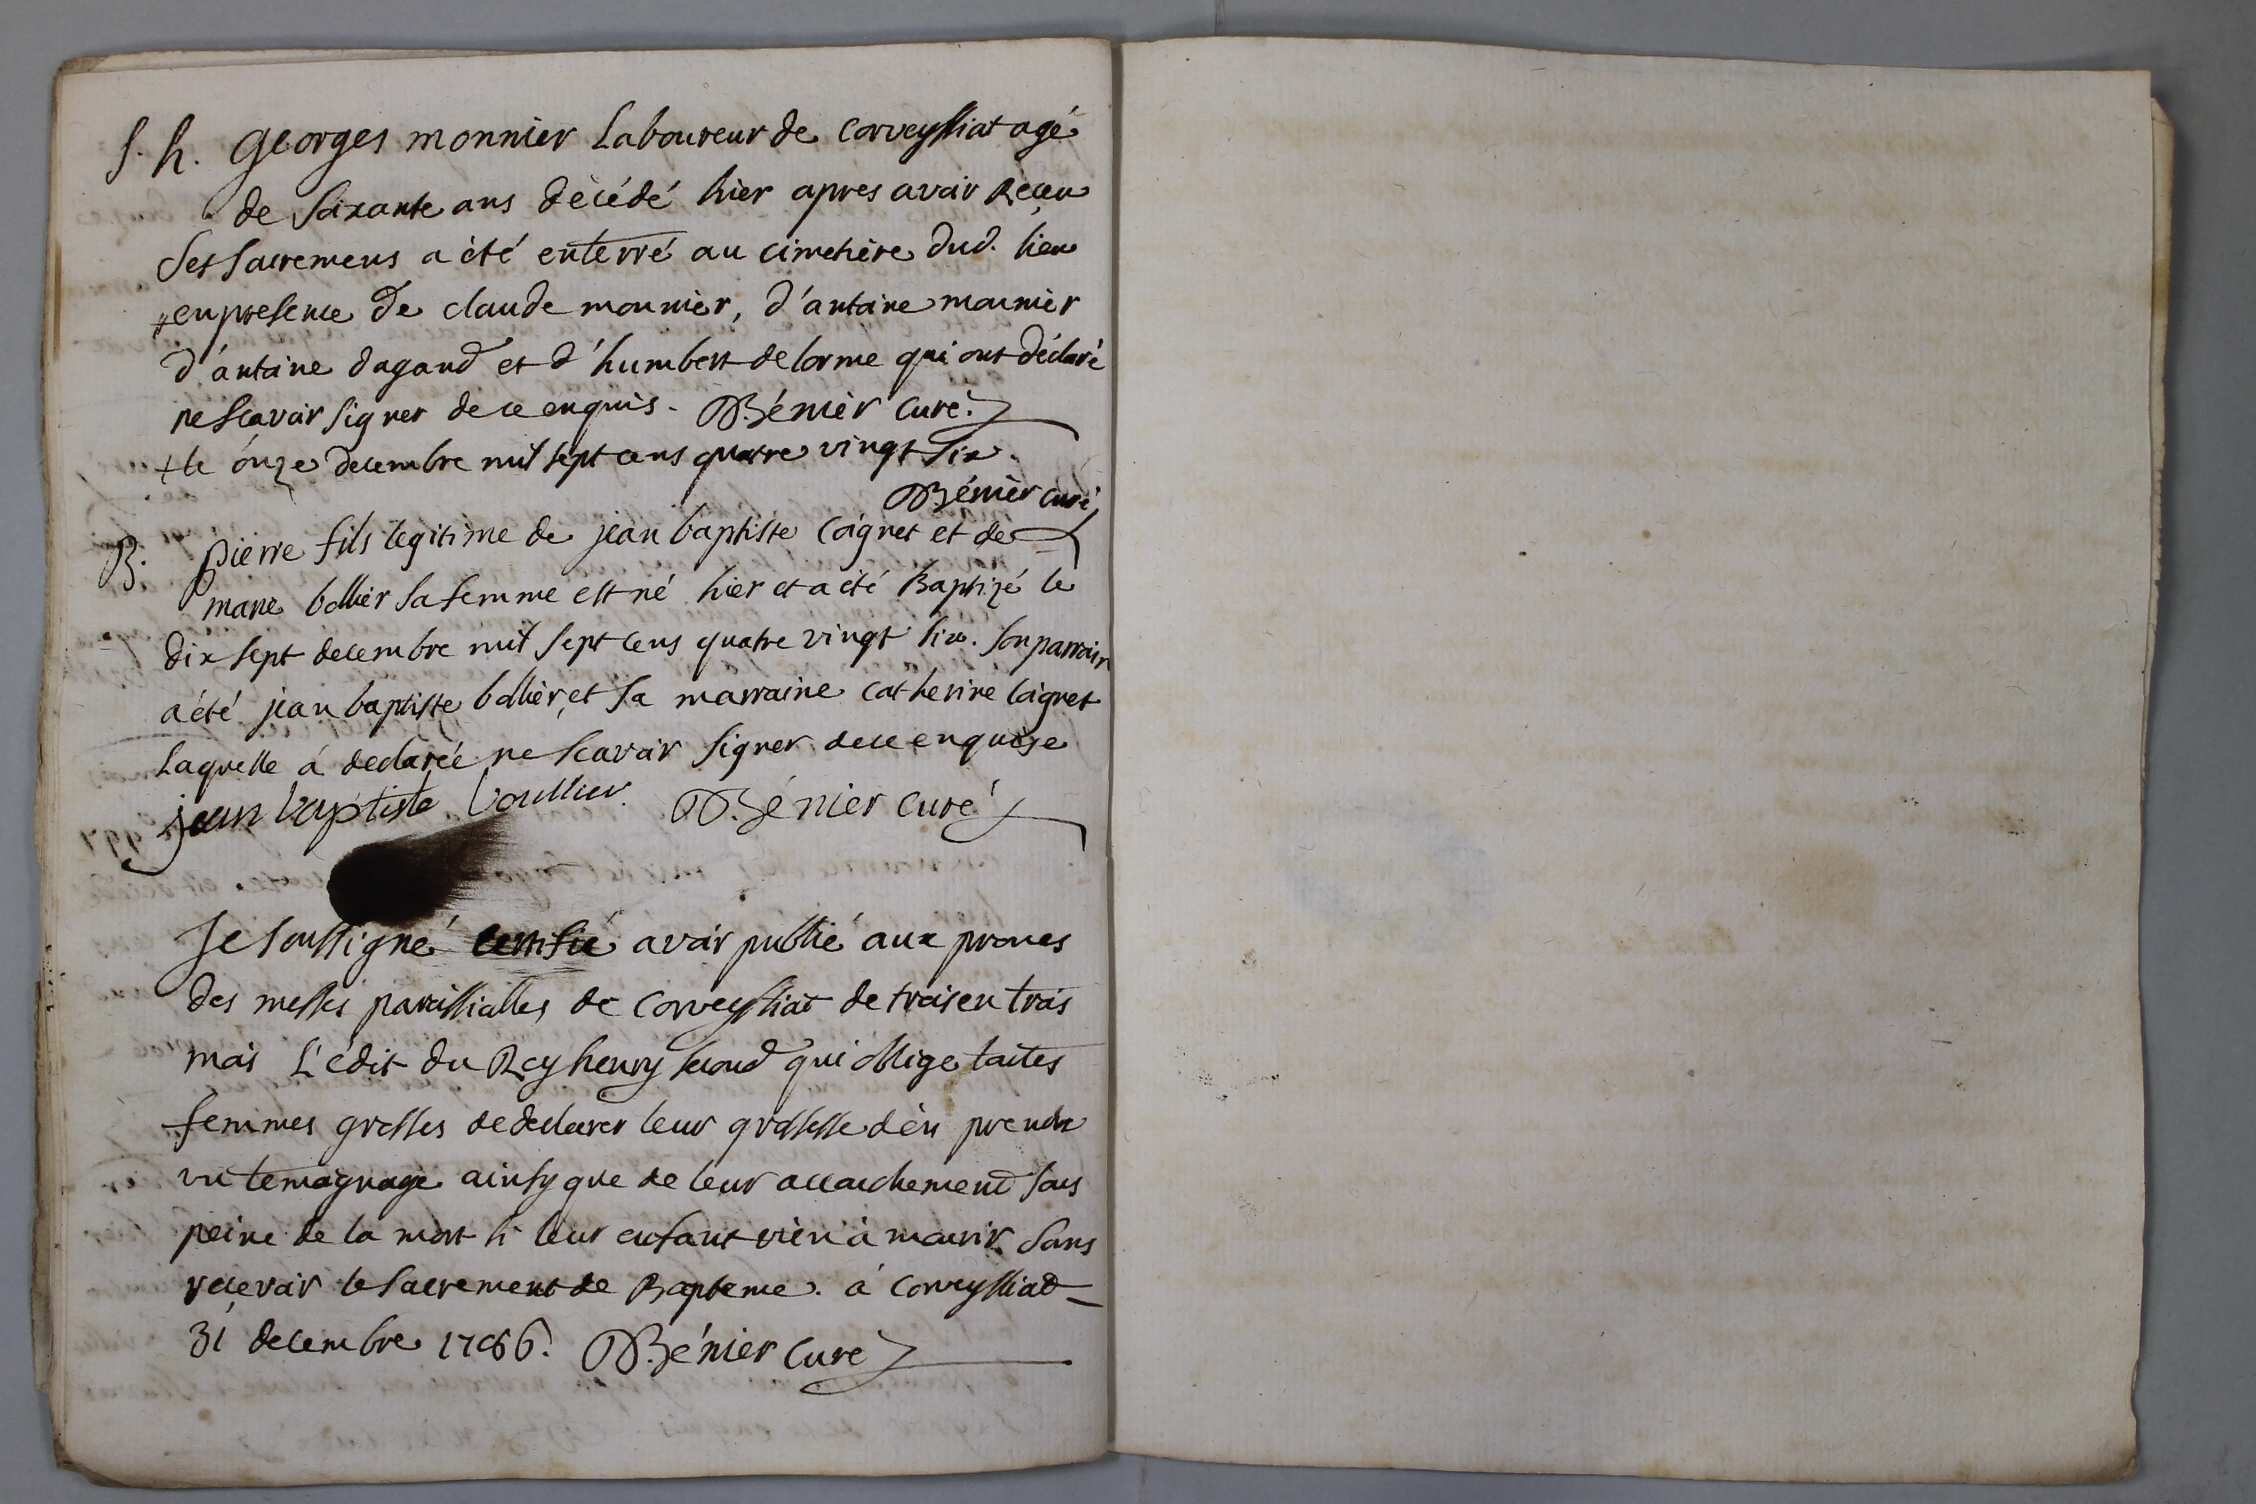 S. h. Georges monnier Laboureur de Corveyssiat agé
de Soixante ans décédé hier apres avoir Reçeu
Ses Sacremens a été enterré au cimetière dud. lieu
+ en presence de claude monnier, d'antoine monnier
d'antoine dagand et d'humbert delorme qui ont déclaré
ne Scavoir signer de ce enquis. Bénier curé
+ le onze decembre mil sept cens quatre vingt six.
Bénier curé
B. Pierre fils legitime de jean baptiste Coignet et de
marie bollier sa femme est né hier et a été Baptizé le
dix sept decembre mil sept cens quatre vingt six. son parrain
a été jean baptiste bollier, et sa marraine catherine Coignet
Laquelle á declarée ne scavoir signer de ce enquise
jean baptiste boullier. Bénier curé
Je soussigné certifié avoir publié aux prones
des messes paroissialles de Corveyssiat de trois en trois
mois L'édit du Roy henry second qui oblige toutes
femmes grosses de declarer leur grossesse d'en prendre
un temoignage ainsy que de leur accouchement sous
peine de la mort si leur enfant vien à mourir sans
recevoir le sacrement de Bapteme. à Corveyssiat
31 decembre 1786. Bénier curé